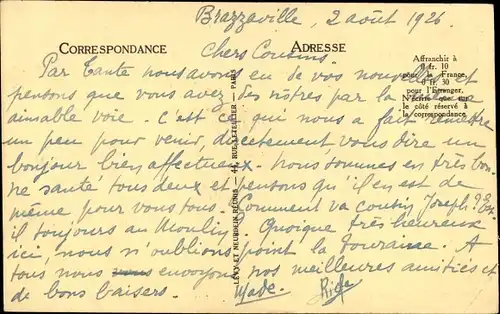 Brazzaville, 2 août 1926
CORRESPONDANCE
ADRESSE
Chers Cousins.
Affranchir à
0 fr. 10
pour la France,
0 fr. 30
pour l'Etranger.
N'écrire que sur
le côté réservé à
la correspondance.
Par Tante nous avons eu de vos nouvelles et
pensons que vous avez des nôtres par la même
aimable voie. c'est ce qui nous a fait remettre
un peu pour venir, directement, vous dire un
bonjour bien affectueux. Nous sommes en très bon-
ne santé tous deux et pensons qu'il en est de
même, pour vous tous. Comment va cousin Joseph? Est
il toujours au Moulin. Quoique très heureux
ici, nous n'oublions point la Touraine. A
tous nous envoyons nos meilleures amitiés et
de bons baisers. Made.
LÉVY ET NEURDEIN RÉUNIS - 44, RUE LETELLIER - PARIS